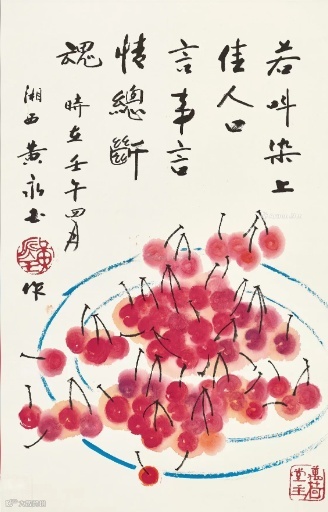 若叫染上
佳人口
言事言
情總斷
魂
時在壬午四月
湘西黃永玉
作
萬荷
堂主